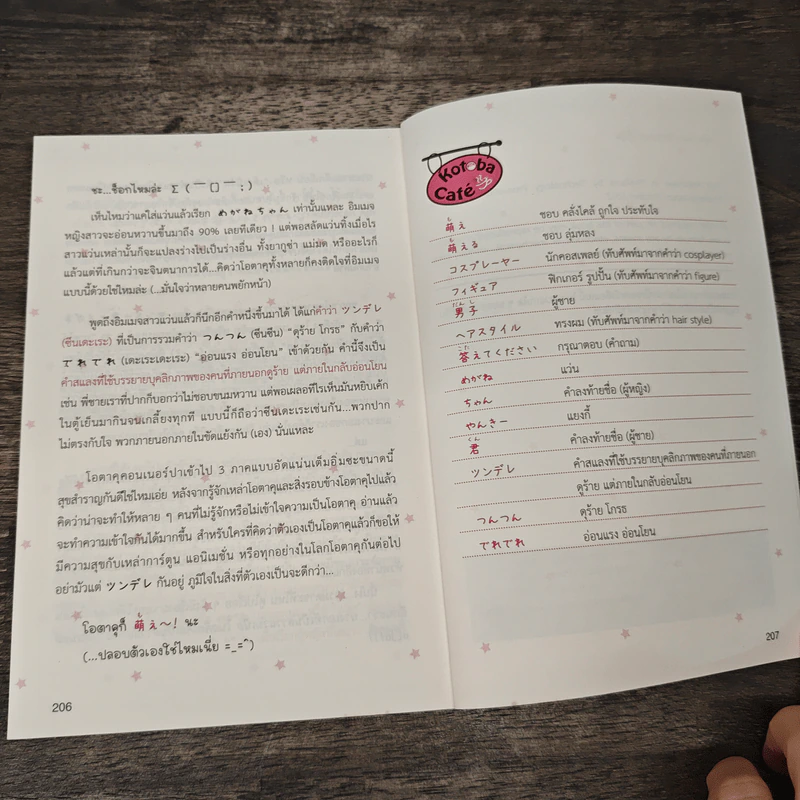 ซะ...ช็อกไหมล่ะ Σ(￣□￣;)
เห็นไหมว่าแค่ใส่แว่นแล้วเรียก めがねちゃん เท่านั้นแหละ อิมเมจ
หญิงสาวจะอ่อนหวานขึ้นมาถึง 90% เลยทีเดียว ! แต่พอสลัดแว่นทิ้งเมื่อไร
สาวแว่นเหล่านั้นก็จะแปลงร่างไปเป็นร่างอื่น ทั้งยากูซ่า แม่มด หรืออะไรก็
แล้วแต่ที่เกินกว่าจะจินตนาการได้...คิดว่าโอตาคุทั้งหลายก็คงติดใจที่อิมเมจ
แบบนี้ด้วยใช่ไหมล่ะ (...มั่นใจว่าหลายคนพยักหน้า)
พูดถึงอิมเมจสาวแว่นแล้วก็นึกอีกคำหนึ่งขึ้นมาได้ ได้แก่คำว่า ツンデレ
(ซึนเดะเระ) ที่เป็นการรวมคำว่า つんつん (ซึนซึน) “ดุร้าย โกรธ” กับคำว่า
でれでれ (เดะเระเดะเระ) “อ่อนแรง อ่อนโยน” เข้าด้วยกัน คำนี้จึงเป็น
คำสแลงที่ใช้บรรยายบุคลิกภาพของคนที่ภายนอกดุร้าย แต่ภายในกลับอ่อนโยน
เช่น พี่ชายเราที่ปากก็บอกว่าไม่ชอบขนมหวาน แต่พอเผลอทีไรเห็นมันหยิบเค้ก
ในตู้เย็นมากินจนเกลี้ยงทุกที แบบนี้ก็ถือว่าซึนเดะเระเช่นกัน...พวกปาก
ไม่ตรงกับใจ พวกภายนอกภายในขัดแย้งกัน (เอง) นั่นแหละ
โอตาคุคอนเนอร์ปาเข้าไป 3 ภาคแบบอัดแน่นเต็มอิ่มซะขนาดนี้
สุขสำราญกันดีใช่ไหมเอ่ย หลังจากรู้จักเหล่าโอตาคุและสิ่งรอบข้างโอตาคุไปแล้ว
คิดว่าน่าจะทำให้หลาย ๆ คนที่ไม่รู้จักหรือไม่เข้าใจความเป็นโอตาคุ อ่านแล้ว
จะทำความเข้าใจกันได้มากขึ้น สำหรับใครที่คิดว่าตัวเองเป็นโอตาคุแล้วก็ขอให้
มีความสุขกับเหล่าการ์ตูน แอนิเมชั่น หรือทุกอย่างในโลกโอตาคุกันต่อไป
อย่ามัวแต่ ツンデレ กันอยู่ ภูมิใจในสิ่งที่ตัวเองเป็นจะดีกว่า...
โอตาคุก็ 萌え〜! นะ
(...ปลอบตัวเองใช่ไหมเนี่ย =_=^)
206
Kotoba
Café
萌え ชอบ คลั่งไคล้ ถูกใจ ประทับใจ
萌える ชอบ ลุ่มหลง
コスプレーヤー นักคอสเพลย์ (ทับศัพท์มาจากคำว่า cosplayer)
フィギュア ฟิกเกอร์ รูปปั้น (ทับศัพท์มาจากคำว่า figure)
男子 ผู้ชาย
ヘアスタイル ทรงผม (ทับศัพท์มาจากคำว่า hair style)
答えてください กรุณาตอบ (คำถาม)
めがね แว่น
ちゃん คำลงท้ายชื่อ (ผู้หญิง)
やんきー แยงกี้
君 คำลงท้ายชื่อ (ผู้ชาย)
ツンデレ คำสแลงที่ใช้บรรยายบุคลิกภาพของคนที่ภายนอก
ดุร้าย แต่ภายในกลับอ่อนโยน
つんつん ดุร้าย โกรธ
でれでれ อ่อนแรง อ่อนโยน
207